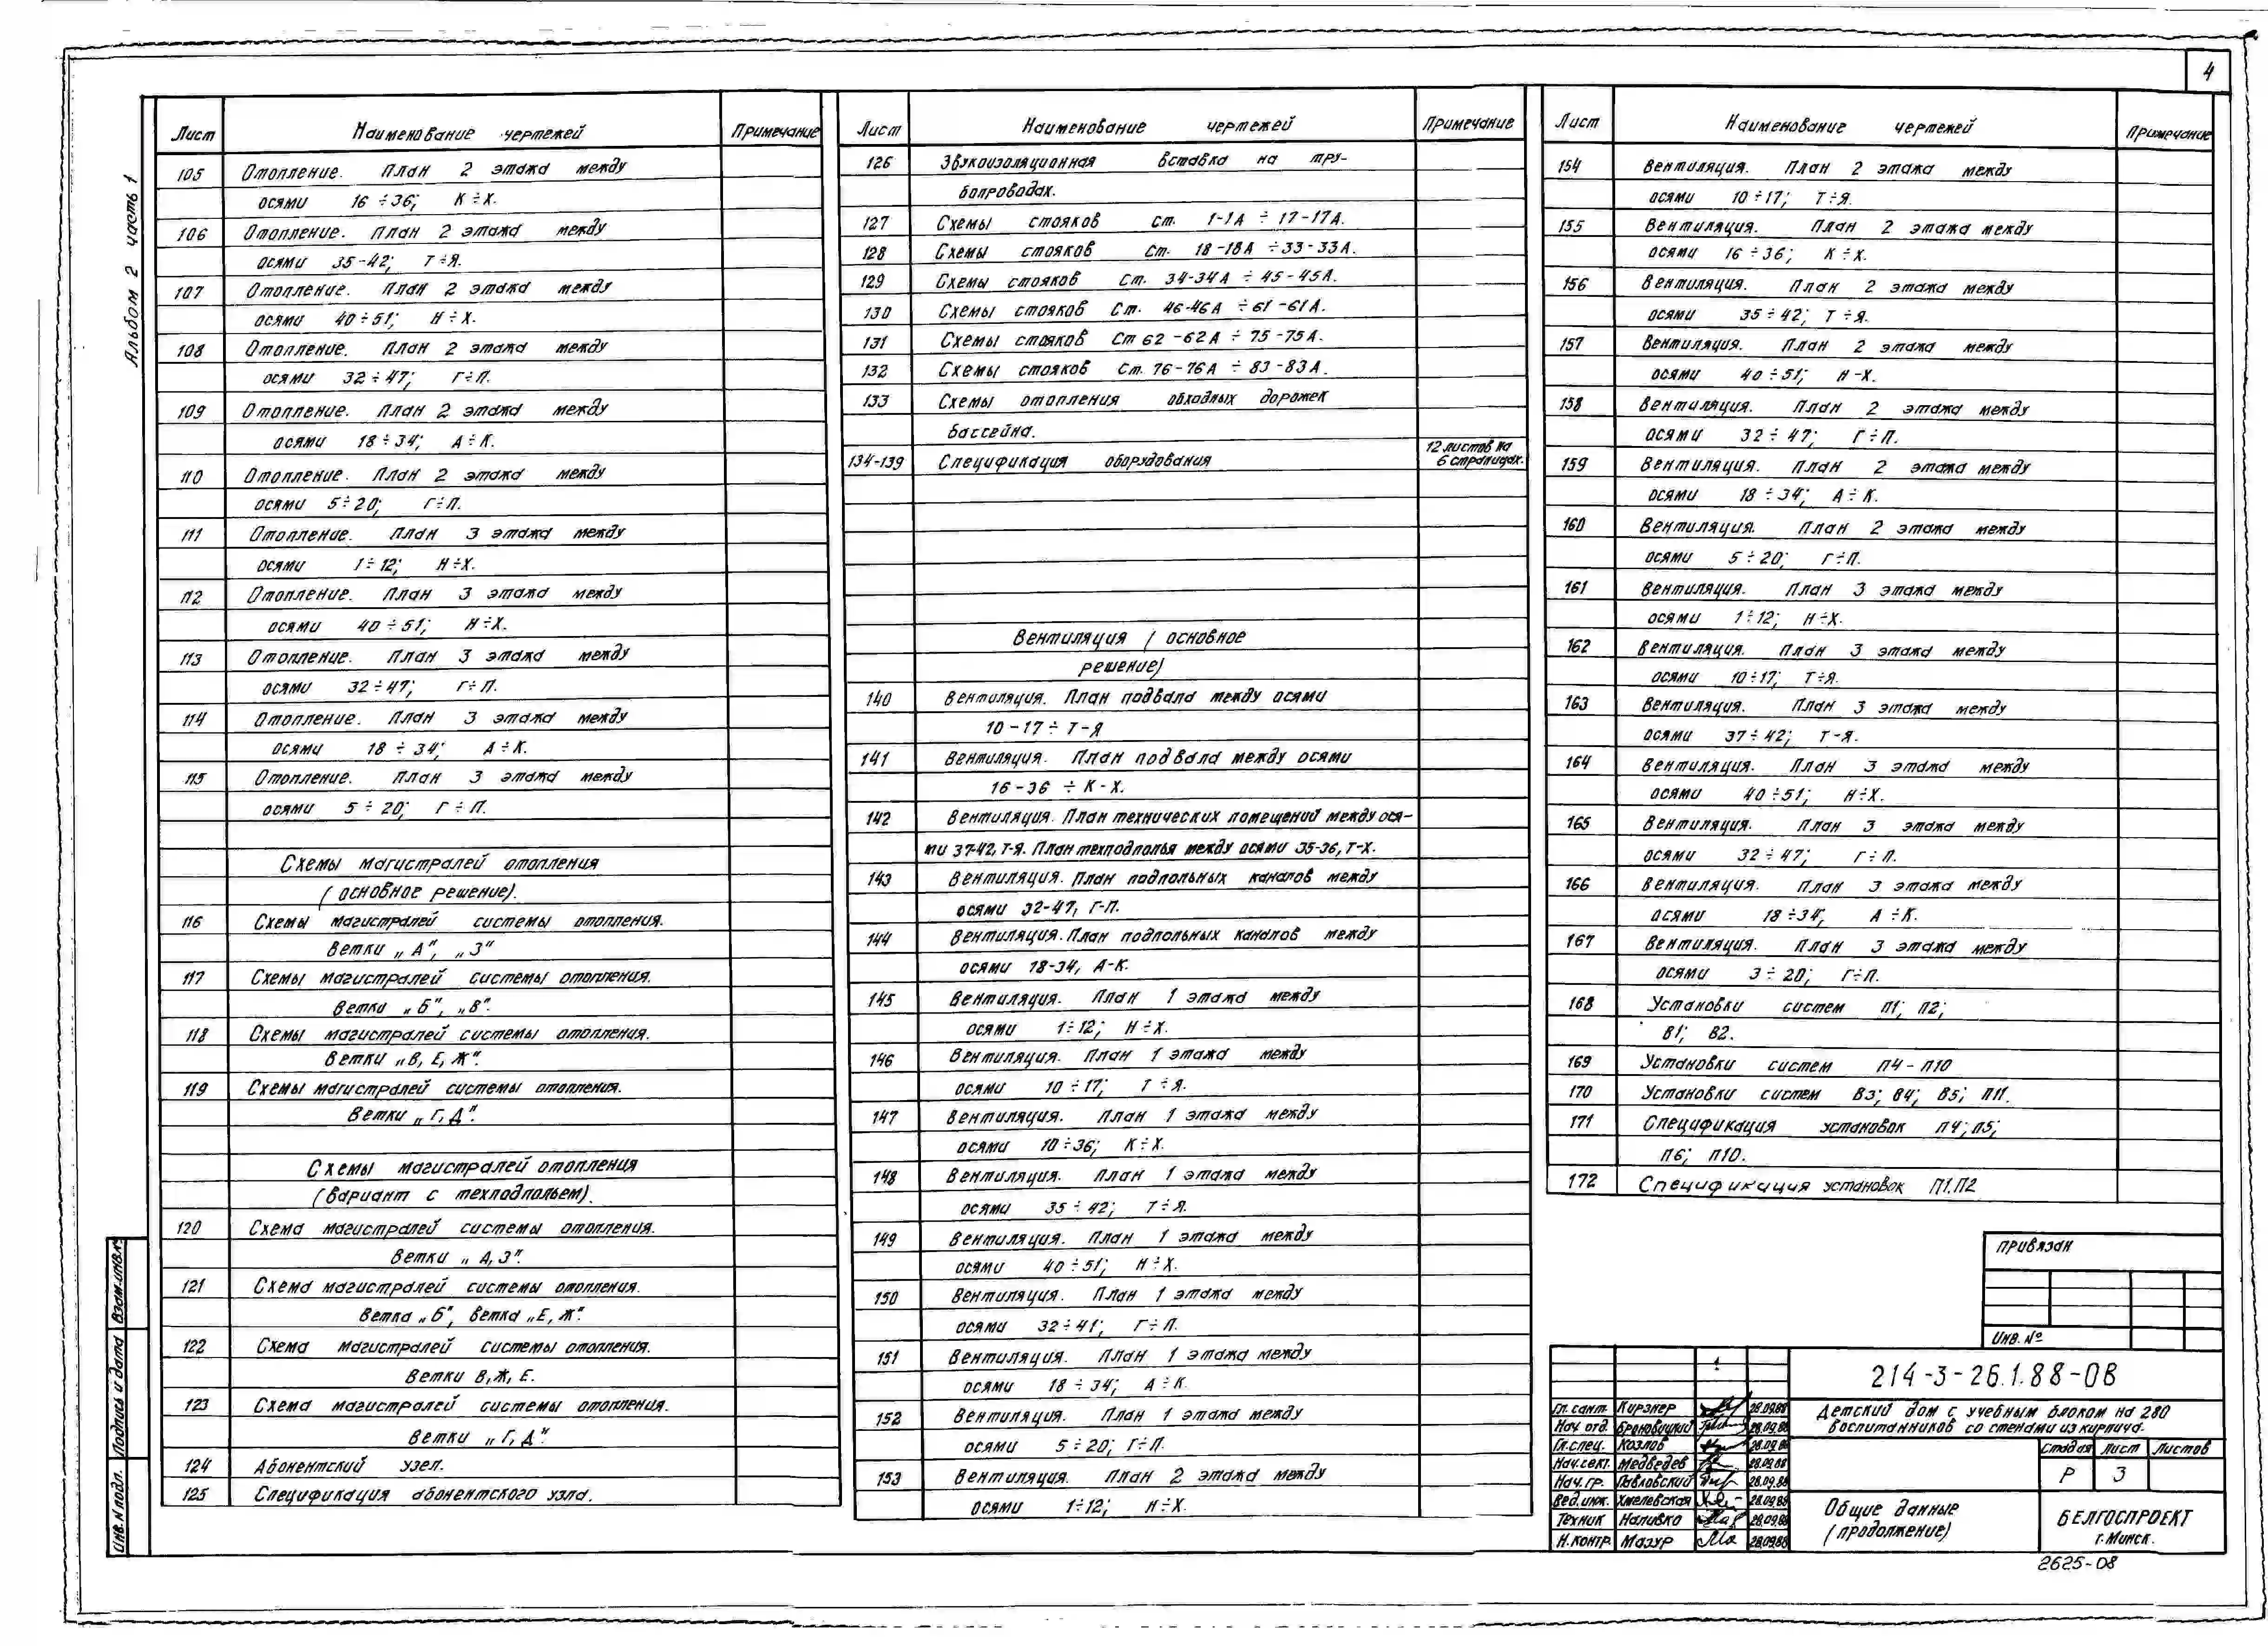 4
Альбом 2 часть 1
Лист Наименование чертежей Примечание
105 Отопление. План 2 этажа между
осями 16÷36; К÷Х.
106 Отопление. План 2 этажа между
осями 35-42; Т÷Я.
107 Отопление. План 2 этажа между
осями 40÷51; Н÷Х.
108 Отопление. План 2 этажа между
осями 32÷47; Г÷П.
109 Отопление. План 2 этажа между
осями 18÷34; А÷К.
110 Отопление. План 2 этажа между
осями 5÷20; Г÷П.
111 Отопление. План 3 этажа между
осями 1÷12; Н÷Х.
112 Отопление. План 3 этажа между
осями 40÷51; Н÷Х.
113 Отопление. План 3 этажа между
осями 32÷47; Г÷П.
114 Отопление. План 3 этажа между
осями 18÷34; А÷К.
115 Отопление. План 3 этажа между
осями 5÷20; Г÷П.
Схемы магистралей отопления
(основное решение).
116 Схемы магистралей системы отопления.
Ветки „А", „З"
117 Схемы магистралей системы отопления.
Ветки „Б", „В".
118 Схемы магистралей системы отопления.
Ветки „В, Е, Ж".
119 Схемы магистралей системы отопления.
Ветки „Г, Д".
Схемы магистралей отопления
(вариант с техподпольем).
120 Схема магистралей системы отопления.
Ветки „А, З".
121 Схема магистралей системы отопления.
Ветка „Б", ветка „Е, Ж".
122 Схема магистралей системы отопления.
Ветки В, Ж, Е.
123 Схема магистралей системы отопления.
Ветки „Г, Д".
124 Абонентский узел.
125 Спецификация абонентского узла.
Лист Наименование чертежей Примечание
126 Звукоизоляционная вставка на тру-
бопроводах.
127 Схемы стояков Ст. 1-1А ÷ 17-17А.
128 Схемы стояков Ст. 18-18А ÷ 33-33А.
129 Схемы стояков Ст. 34-34А ÷ 45-45А.
130 Схемы стояков Ст. 46-46А ÷ 61-61А.
131 Схемы стояков Ст 62-62А ÷ 75-75А.
132 Схемы стояков Ст. 76-76А ÷ 83-83А.
133 Схемы отопления обходных дорожек
бассейна.
134-139 Спецификация оборудования 12 листов на
6 страницах.
Вентиляция (основное
решение)
140 Вентиляция. План подвала между осями
10-17 ÷ Т-Я
141 Вентиляция. План подвала между осями
16-36 ÷ К-Х.
142 Вентиляция. План технических помещений между ося-
ми 37-42, Т-Я. План техподполья между осями 35-36, Т-Х.
143 Вентиляция. План подпольных каналов между
осями 32-47, Г-П.
144 Вентиляция. План подпольных каналов между
осями 18-34, А-К.
145 Вентиляция. План 1 этажа между
осями 1÷12; Н÷Х.
146 Вентиляция. План 1 этажа между
осями 10÷17; Т÷Я.
147 Вентиляция. План 1 этажа между
осями 10÷36; К÷Х.
148 Вентиляция. План 1 этажа между
осями 35÷42; Т÷Я.
149 Вентиляция. План 1 этажа между
осями 40÷51; Н÷Х.
150 Вентиляция. План 1 этажа между
осями 32÷41; Г÷П.
151 Вентиляция. План 1 этажа между
осями 18÷34; А÷К.
152 Вентиляция. План 1 этажа между
осями 5÷20; Г÷П.
153 Вентиляция. План 2 этажа между
осями 1÷12; Н÷Х.
Лист Наименование чертежей Примечание
154 Вентиляция. План 2 этажа между
осями 10÷17; Т÷Я.
155 Вентиляция. План 2 этажа между
осями 16÷36; К÷Х.
156 Вентиляция. План 2 этажа между
осями 35÷42; Т÷Я.
157 Вентиляция. План 2 этажа между
осями 40÷51; Н-Х.
158 Вентиляция. План 2 этажа между
осями 32÷47; Г÷П.
159 Вентиляция. План 2 этажа между
осями 18÷34; А÷К.
160 Вентиляция. План 2 этажа между
осями 5÷20; Г÷П.
161 Вентиляция. План 3 этажа между
осями 1÷12; Н÷Х.
162 Вентиляция. План 3 этажа между
осями 10÷17; Т÷Я.
163 Вентиляция. План 3 этажа между
осями 37÷42; Т-Я.
164 Вентиляция. План 3 этажа между
осями 40÷51; Н÷Х.
165 Вентиляция. План 3 этажа между
осями 32÷47; Г÷П.
166 Вентиляция. План 3 этажа между
осями 18÷34; А÷К.
167 Вентиляция. План 3 этажа между
осями 3÷20; Г÷П.
168 Установки систем П1; П2;
В1; В2.
169 Установки систем П4-П10
170 Установки систем В3; В4; В5; П11.
171 Спецификация установок П4; П5;
П6; П10.
172 Спецификация установок П1, П2
Привязан
Инв. №
214-3-26.1.88-ОВ
Гл. сант. Кирзнер 28.09.88
Нач. отд. Броновицкий 28.09.88
Гл. спец. Козлов 28.09.88
Нач. сект. Медведев 28.09.88
Нач. гр. Павловский 28.09.88
Вед. инж. Хмелевская 28.09.88
Техник Наливко 28.09.88
Н. контр. Мазур 28.09.88
Детский дом с учебным блоком на 280
воспитанников со стенами из кирпича.
Стадия Лист Листов
Р 3
Общие данные
(продолжение)
БЕЛГОСПРОЕКТ
г. Минск.
2625-08
Инв. N подл. Подпись и дата Взам. инв. №